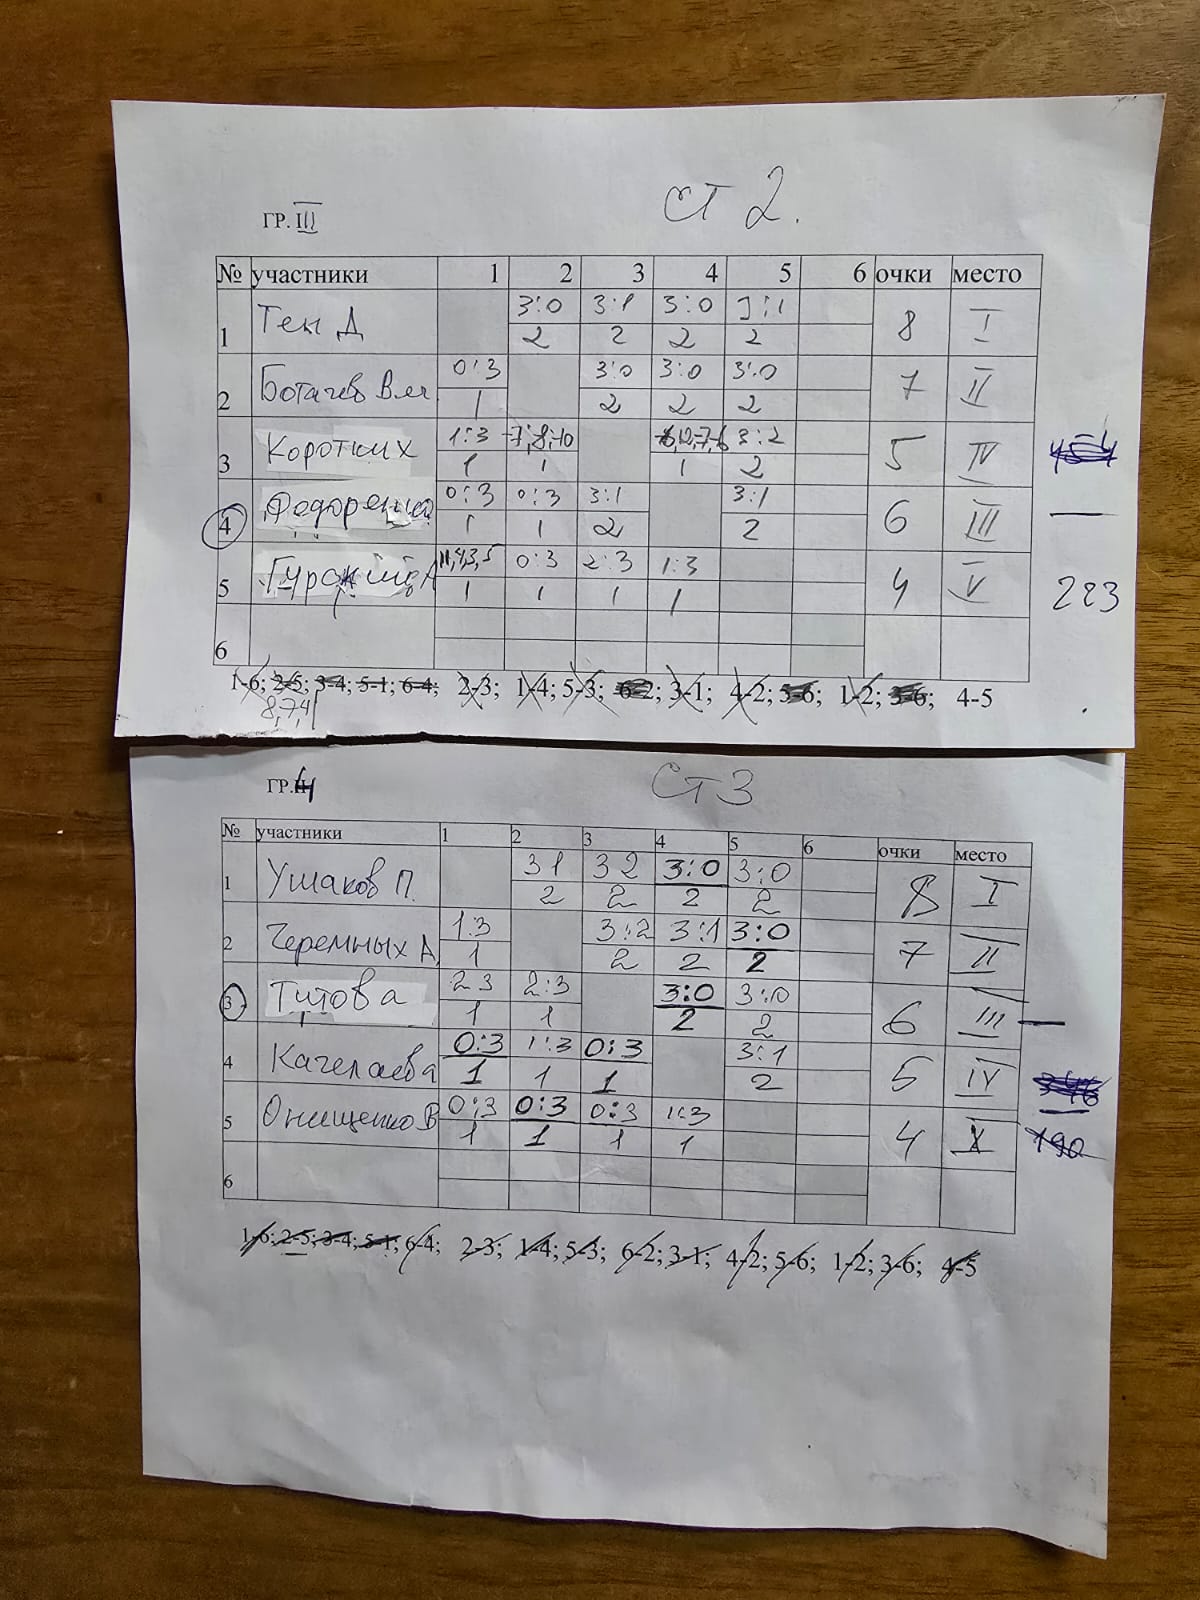 ст 2.
ГР. III
№ участники 1 2 3 4 5 6 очки место
1 Тен Д 3:0 3:1 3:0 3:1 8 I
2 2 2 2
2 Ботачев Вл 0:3 3:0 3:0 3:0 7 II
1 2 2 2
3 Коротких 1:3 -7;-8;-10 3:2 5 IV
1 1 1 2
4 Федоренко 0:3 0:3 3:1 3:1 6 III —
1 1 2 2
5 0:3 2:3 1:3 4 V 223
1 1 1 1
6
1-6; 2-5; 3-4; 5-1; 6-4; 2-3; 1-4; 5-3; 6-2; 3-1; 4-2; 5-6; 1-2; 3-6; 4-5
8,7,4
ст 3
ГР.
№ участники 1 2 3 4 5 6 очки место
1 Ушаков П. 3 1 3 2 3:0 3:0 8 I
2 2 2 2
2 Черемных А. 1:3 3:2 3:1 3:0 7 II
1 2 2 2
3 Титова 2 3 2:3 3:0 3:0 6 III —
1 1 2 2
4 Качелаева 0:3 1:3 0:3 3:1 5 IV
1 1 1 2
5 Онищенко В 0:3 0:3 0:3 1:3 4 190
1 1 1 1
6
1-6; 2-5; 3-4; 5-1; 6-4; 2-3; 1-4; 5-3; 6-2; 3-1; 4-2; 5-6; 1-2; 3-6; 4-5